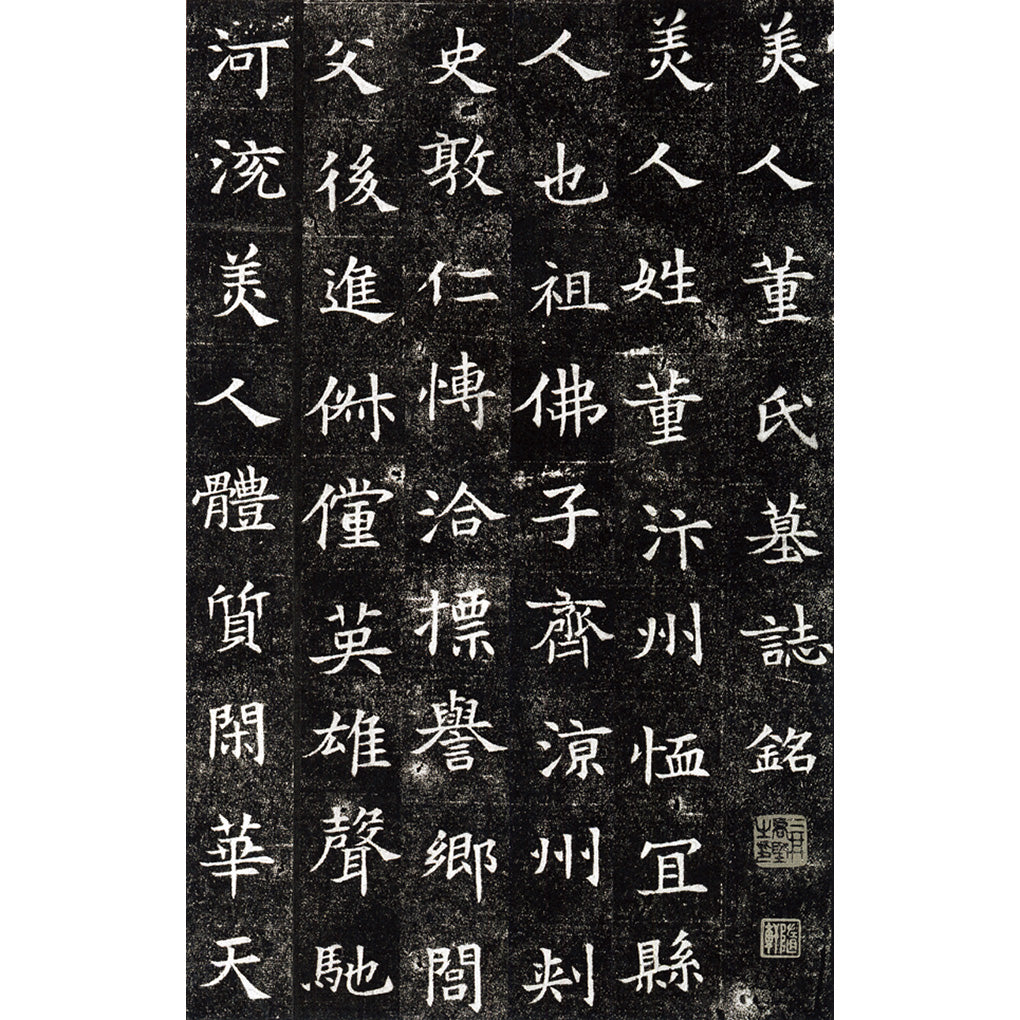 美人董氏墓誌銘
美人姓董汴州恤冝縣
人也祖佛子齊涼州刾
史敦仁愽洽摽譽鄉閭
父後進俶儻英雄聲馳
河流美人體質閑華天